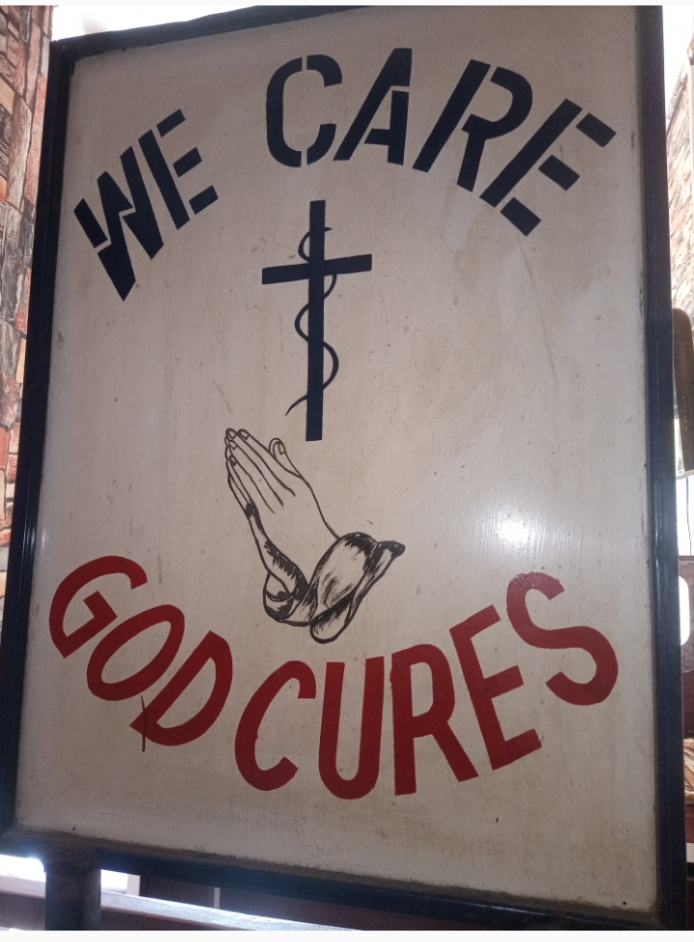 WE CARE
GOD CURES